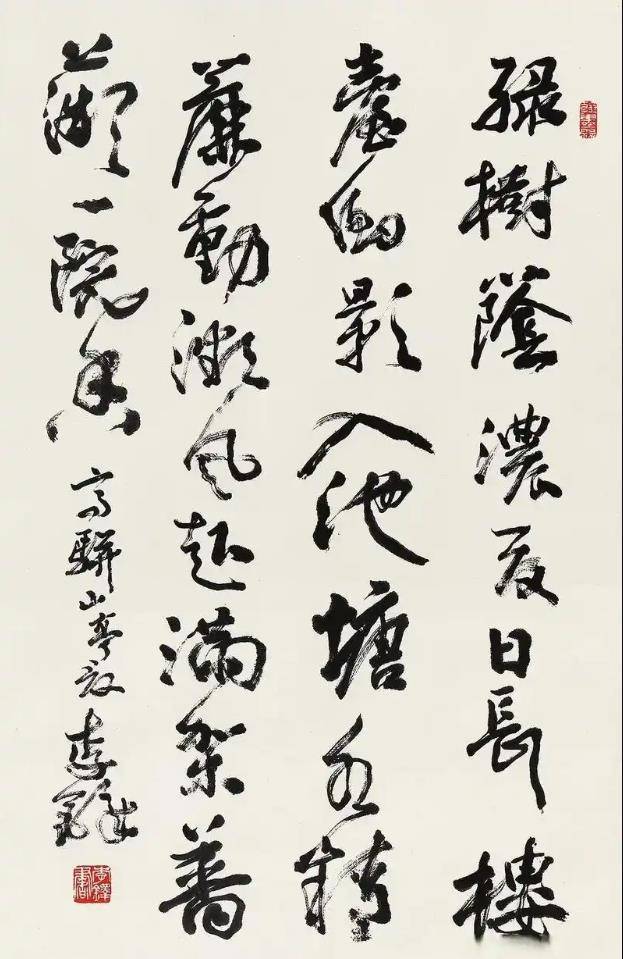 緑樹蔭濃夏日長樓
臺倒影入池塘水精
簾動微風起滿架薔
薇一院香 高駢山亭夏 李鐸
李鐸書